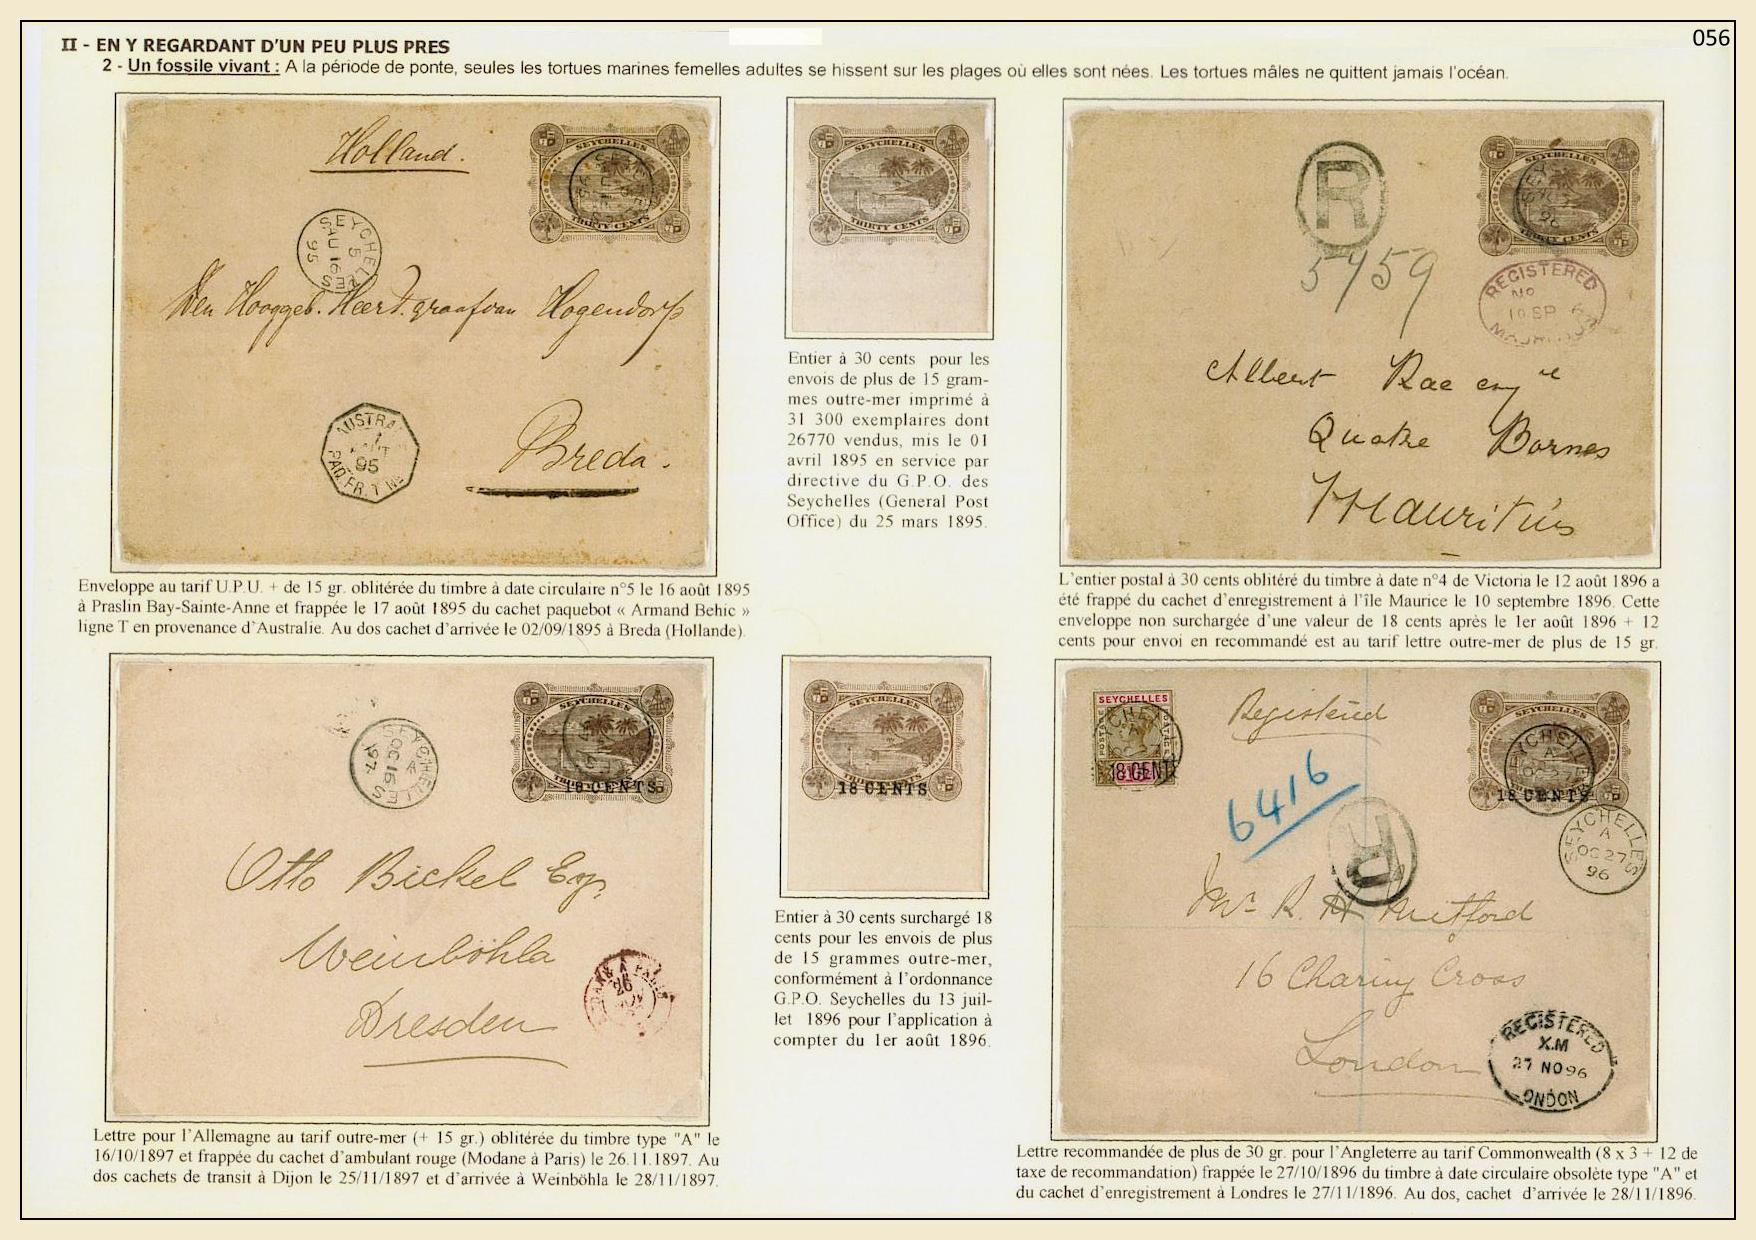 056
II - EN Y REGARDANT D'UN PEU PLUS PRES
2 - Un fossile vivant : A la période de ponte, seules les tortues marines femelles adultes se hissent sur les plages où elles sont nées. Les tortues mâles ne quittent jamais l'océan.
Holland.
SEYCHELLES
THIRTY CENTS
SEYCHELLES
5
AU 16
95
Den Hooggeb. Heer D. graaf van Hogendorp
AUSTRA
95
PAQ. FR. T No
Breda.
SEYCHELLES
THIRTY CENTS
Entier à 30 cents pour les
envois de plus de 15 gram-
mes outre-mer imprimé à
31 300 exemplaires dont
26770 vendus, mis le 01
avril 1895 en service par
directive du G.P.O. des
Seychelles (General Post
Office) du 25 mars 1895.
R
5759
SEYCHELLES
THIRTY CENTS
96
REGISTERED
No
10 SP 6
Albert Rae esqre
Quatre Bornes
Mauritius
Enveloppe au tarif U.P.U. + de 15 gr. oblitérée du timbre à date circulaire n°5 le 16 août 1895
à Praslin Bay-Sainte-Anne et frappée le 17 août 1895 du cachet paquebot « Armand Behic »
ligne T en provenance d'Australie. Au dos cachet d'arrivée le 02/09/1895 à Breda (Hollande).
L'entier postal à 30 cents oblitéré du timbre à date n°4 de Victoria le 12 août 1896 a
été frappé du cachet d'enregistrement à l'île Maurice le 10 septembre 1896. Cette
enveloppe non surchargée d'une valeur de 18 cents après le 1er août 1896 + 12
cents pour envoi en recommandé est au tarif lettre outre-mer de plus de 15 gr.
SEYCHELLES
A
OC 16
97
SEYCHELLES
18 CENTS
Otto Bickel Esq,
Weinböhla
Dresden
MODANE À PARIS
26
SEYCHELLES
18 CENTS
Entier à 30 cents surchargé 18
cents pour les envois de plus
de 15 grammes outre-mer,
conformément à l'ordonnance
G.P.O. Seychelles du 13 juil-
let 1896 pour l'application à
compter du 1er août 1896.
SEYCHELLES
POSTAGE
18 CENTS
Registered
6416
R
SEYCHELLES
A
OC 27
18 CENTS
SEYCHELLES
A
OC 27
96
Mr R. H Mitford
16 Charing Cross
London
REGISTERED
X.M
27 NO 96
ONDON
Lettre pour l'Allemagne au tarif outre-mer (+ 15 gr.) oblitérée du timbre type "A" le
16/10/1897 et frappée du cachet d'ambulant rouge (Modane à Paris) le 26.11.1897. Au
dos cachets de transit à Dijon le 25/11/1897 et d'arrivée à Weinböhla le 28/11/1897.
Lettre recommandée de plus de 30 gr. pour l'Angleterre au tarif Commonwealth (8 x 3 + 12 de
taxe de recommandation) frappée le 27/10/1896 du timbre à date circulaire obsolète type "A" et
du cachet d'enregistrement à Londres le 27/11/1896. Au dos, cachet d'arrivée le 28/11/1896.